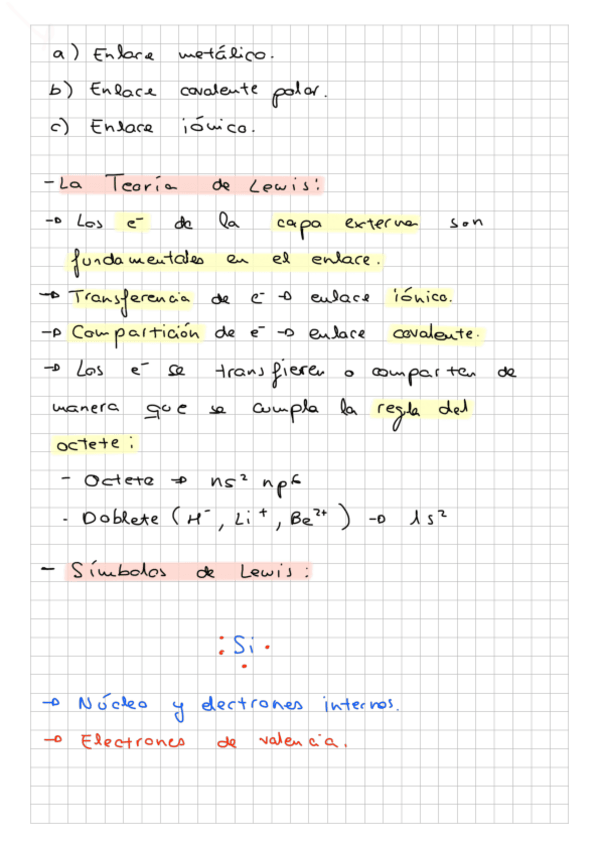 a) Enlace metálico.
b) Enlace covalente polar.
c) Enlace iónico.
- La Teoría de Lewis:
→ Los e⁻ de la capa externa son
fundamentales en el enlace.
→ Transferencia de e⁻ → enlace iónico.
→ Compartición de e⁻ → enlace covalente.
→ Los e⁻ se transfieren o comparten de
manera que se cumpla la regla del
octete:
- Octete → ns² np⁶
- Doblete (H⁻, Li⁺, Be²⁺) → 1s²
- Símbolos de Lewis:
:Si·
→ Núcleo y electrones internos.
→ Electrones de valencia.